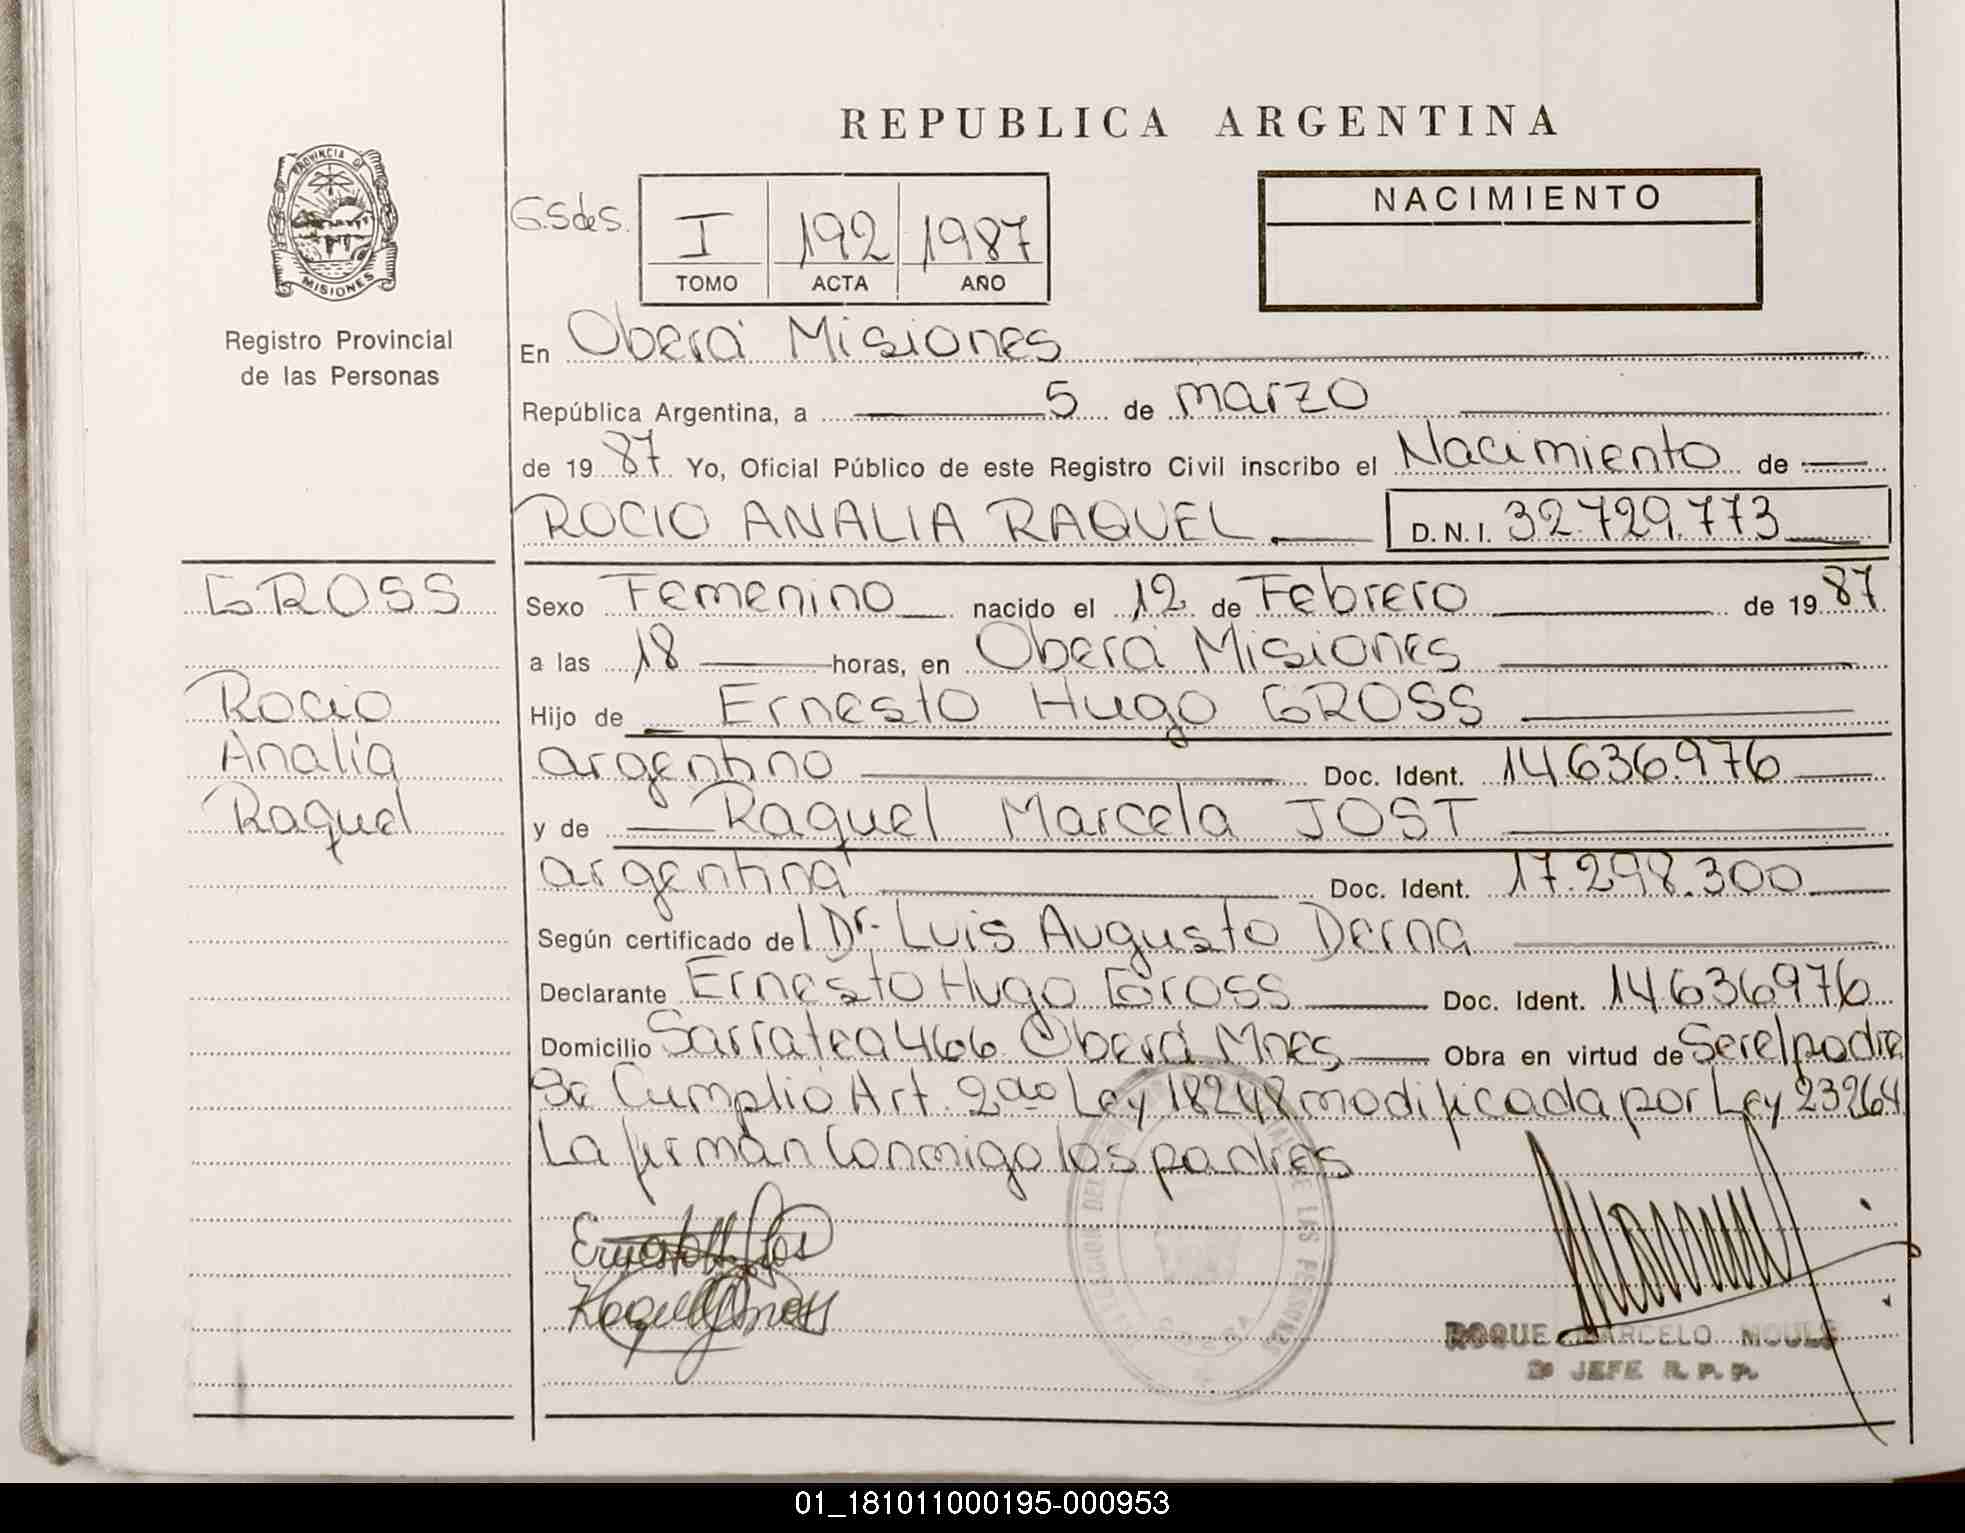 REPUBLICA ARGENTINA
PROVINCIA DE
MISIONES
Registro Provincial
de las Personas
G.S de S.
I 192 1987
TOMO ACTA AÑO
NACIMIENTO
En Oberá Misiones
República Argentina, a 5 de marzo
de 1987 Yo, Oficial Público de este Registro Civil inscribo el Nacimiento de
ROCIO ANALIA RAQUEL D.N.I. 32.729.773
GROSS
Rocio
Analia
Raquel
Sexo Femenino nacido el 12 de Febrero de 1987
a las 18 horas, en Oberá Misiones
Hijo de Ernesto Hugo GROSS
argentino Doc. Ident. 14.636.976
y de Raquel Marcela JOST
argentina Doc. Ident. 17.298.300
Según certificado del Dr. Luis Augusto Derna
Declarante Ernesto Hugo Gross Doc. Ident. 14636976
Domicilio Sarratea 466 Oberá Mnes Obra en virtud de Ser el padre
Se Cumplió Art. 2do Ley 18248 modificada por Ley 23264
La firman Conmigo los padres
ROQUE MARCELO
2º JEFE R. P. P.
01_181011000195-000953